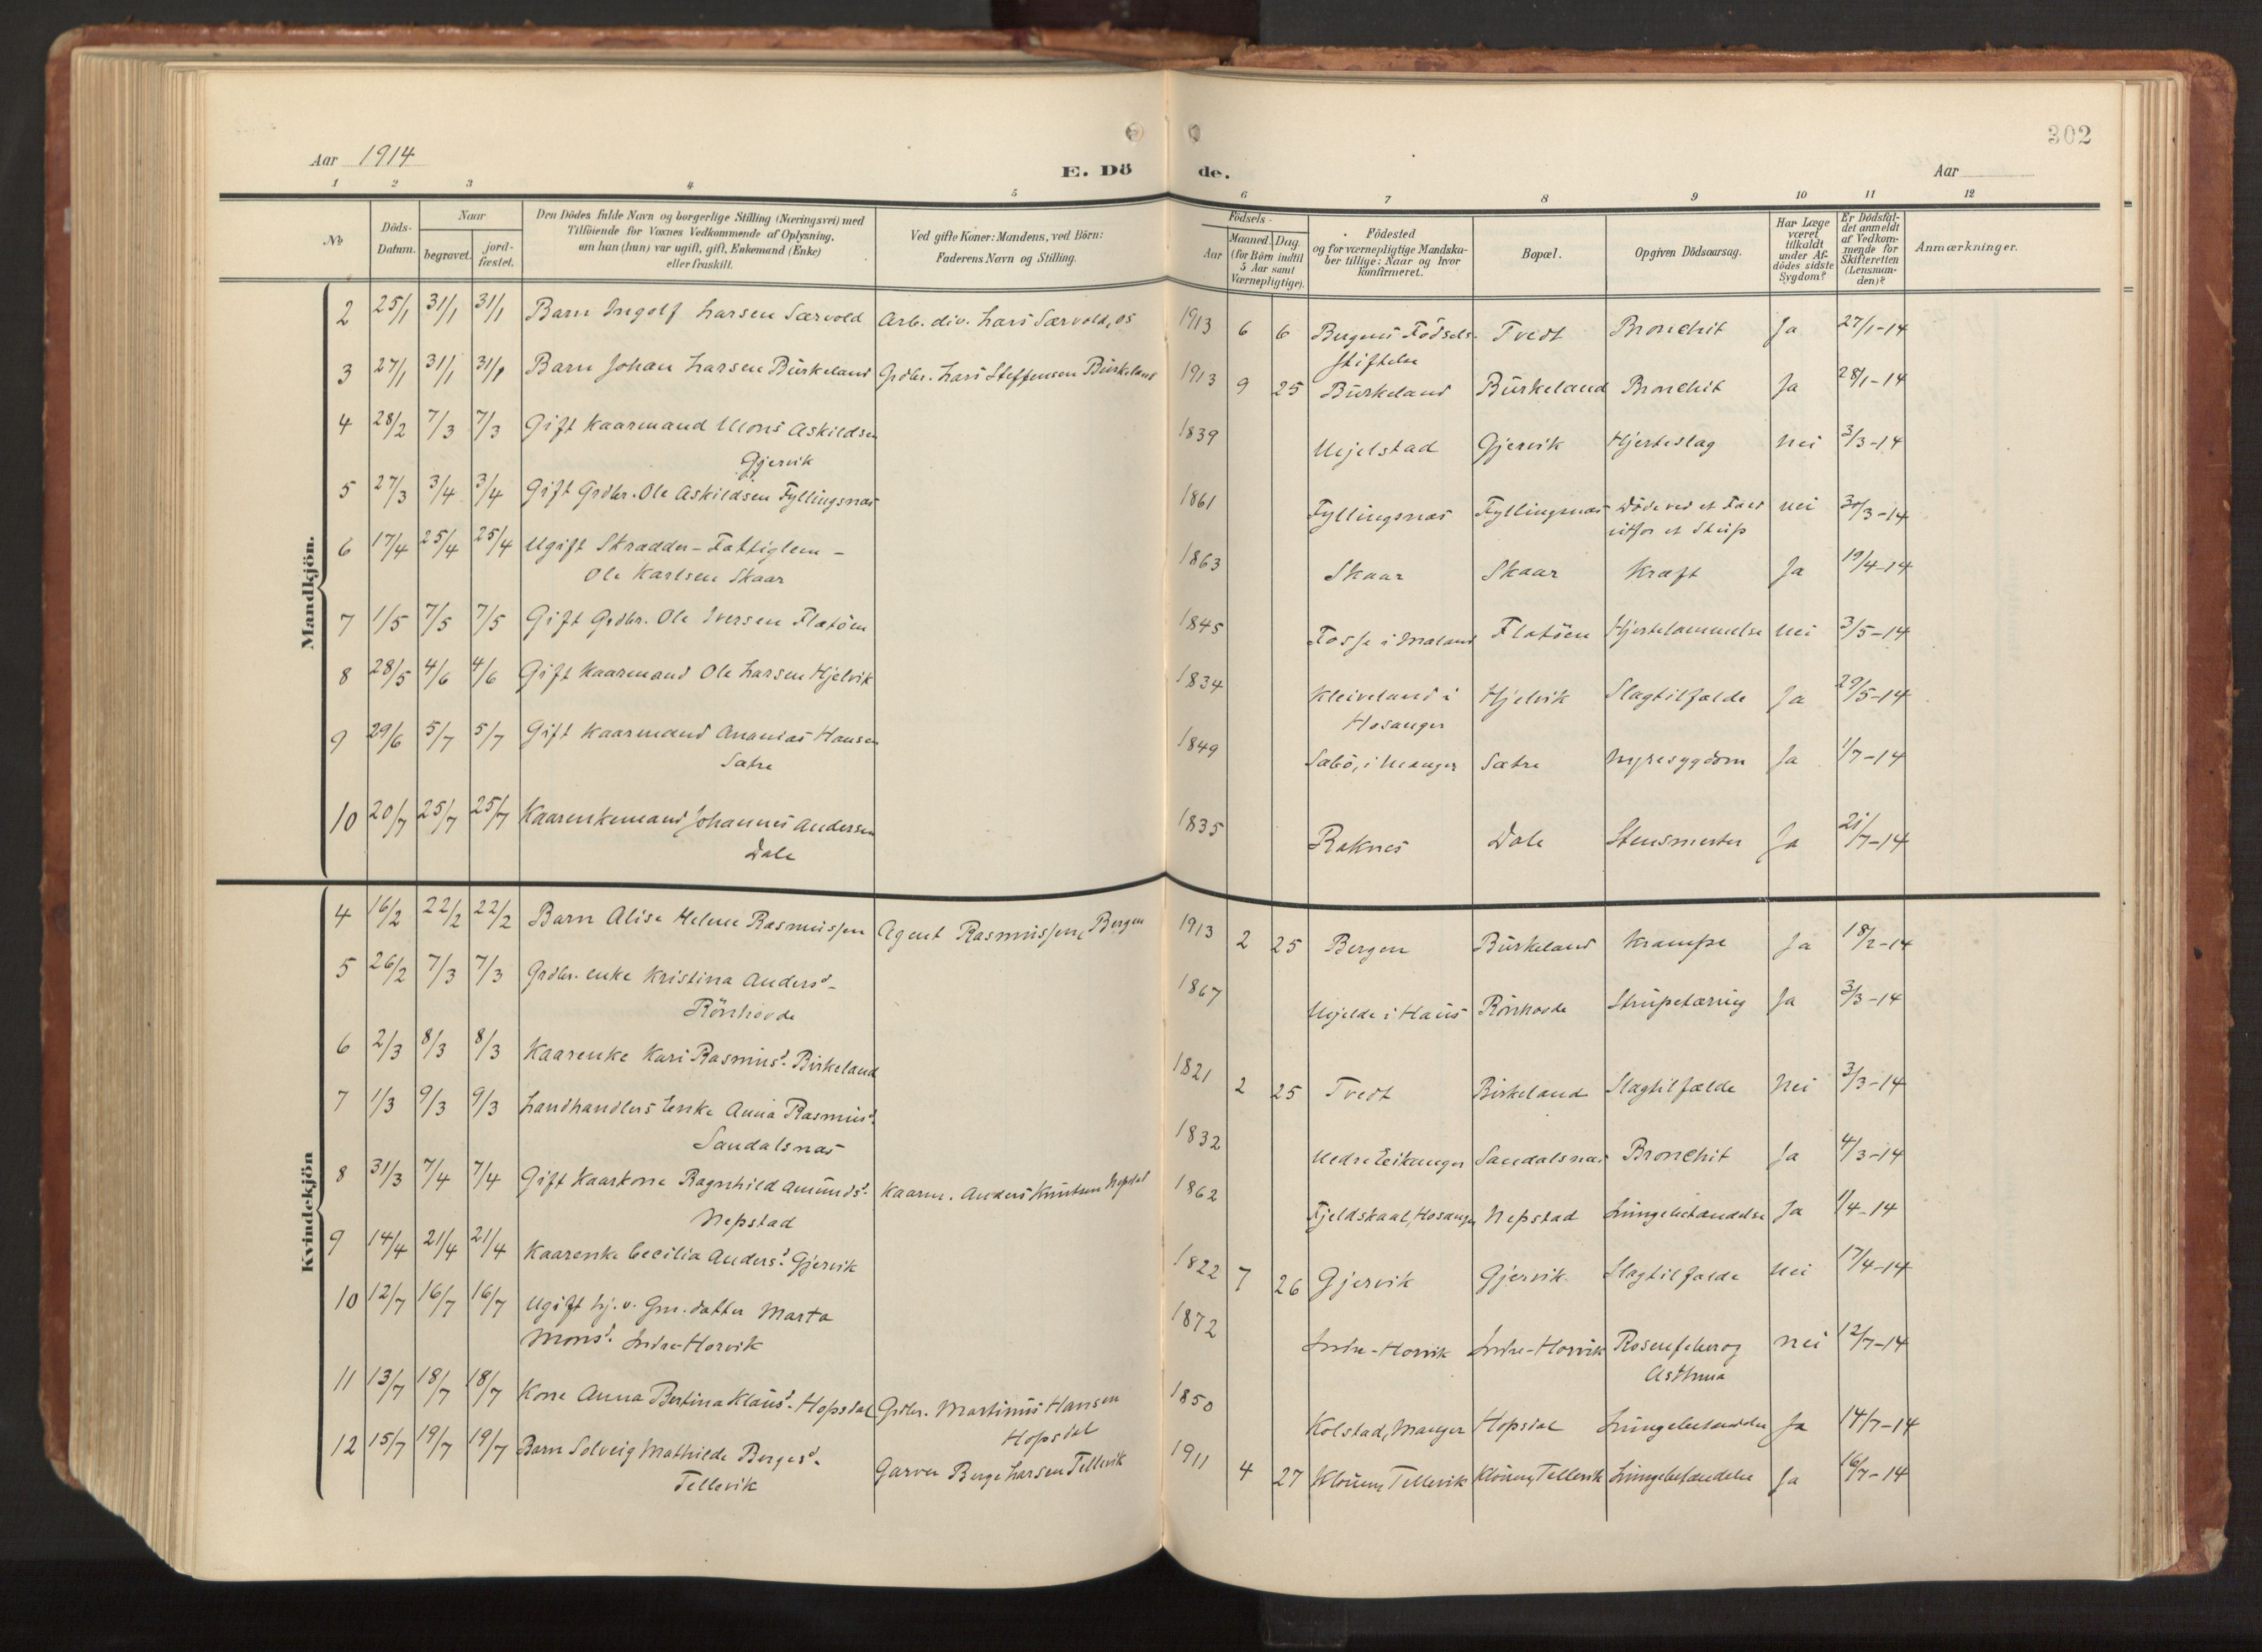 302
Aar 1914
E. Dö de.
Aar
1 2 3 4 5 6 7 8 9 10 11 12
No
Döds-Datum.
Naar
begravet.
jord-fæstet.
Den Dödes fulde Navn og borgerlige Stilling (Næringsvei) med
Tilföiende for Voxnes Vedkommende af Oplysning,
om han (hun) var ugift, gift, Enkemand (Enke)
eller fraskilt.
Ved gifte Koner: Mandens, ved Börn:
Faderens Navn og Stilling.
Födsels-
Aar
Maaned. Dag.
(for Börn indtil
5 Aar samt
Værnepligtige).
Födested
og for værnepligtige Mandska-
ber tillige: Naar og hvor
konfirmeret.
Bopæl.
Opgiven Dödsaarsag.
Har Læge
været
tilkaldt
under Af-
dödes sidste
Sygdom?
Er Dödsfal-
det anmeldt
af Vedkom-
mende for
Skifteretten
(Lensman-
den)?
Anmærkninger.
Mandkjön.
2 25/1 31/1 31/1 Barn Ingolf Larsen Særvold Arb. div. Lars Særvold, Os 1913 6 6 Bergens Födsels-
Stiftelse Tvedt Bronchit Ja 27/1-14
3 27/1 31/1 31/1 Barn Johan Larsen Birkeland Grdbr. Lars Steffensen Birkeland 1913 9 25 Birkeland Birkeland Bronchit Ja 28/1-14
4 28/2 7/3 7/3 Gift Kaarmand Mons Askildsen
Gjervik 1839 Mjelstad Gjervik Hjerteslag Nei 3/3-14
5 27/3 3/4 3/4 Gift Grdbr. Ole Askildsen Fyllingsnæs 1861 Fyllingsnæs Fyllingsnæs Döde ved et Fald
utfor et Stup nei 30/3-14
6 17/4 25/4 25/4 Ugift Skrædder - Fattiglem -
Ole Karlsen Skaar 1863 Skaar Skaar Kræft Ja 19/4-14
7 1/5 7/5 7/5 Gift Grdbr. Ole Iversen Flatöen 1845 Fosse i Flatöen Hjertelammelse Nei 3/5-14
8 28/5 4/6 4/6 Gift Kaarmand Ole Larsen Hjelvik 1834 Kleiveland i
Hosanger Hjelvik Slagtilfælde Ja 29/5-14
9 29/6 5/7 5/7 Gift Kaarmand Ananias Hansen
Sætre 1849 Sæbö, i Manger Sætre Nyresygdom Ja 1/7-14
10 20/7 25/7 25/7 Kaarenkemand Johannes Andersen
Dale 1835 Raknes Dale Stensmerter Ja 21/7-14
Kvindekjön
4 16/2 22/2 22/2 Barn Alise Helene Rasmussen Agent Rasmussen, Bergen 1913 2 25 Bergen Birkeland Krampe Ja 18/2-14
5 26/2 7/3 7/3 Grdbr. enke Kristina Andersd.
Rönhovde 1867 Mjelde i Haus Rönhovde Strupetæring Ja 3/3-14
6 2/3 8/3 8/3 Kaarenke Kari Rasmusd. Birkeland 1821 2 25 Tvedt Birkeland Slagtilfælde Nei 3/3-14
7 1/3 9/3 9/3 Landhandlers Enke Anna Rasmusd.
Sandalsnæs 1832 Nedre Eikanger Sandalsnæs Bronchit Ja 4/3-14
8 31/3 7/4 7/4 Gift Kaarkone Ragnhild Amundsd.
Nepstad Kaarm. Anders Knutsen Nepstad 1862 Fjeldskaal, Hosanger Nepstad Lungebetændelse Ja 1/4-14
9 14/4 21/4 21/4 Kaarenke Cecilia Andersd. Gjervik 1822 7 26 Gjervik Gjervik Slagtilfælde Nei 17/4-14
10 12/7 16/7 16/7 Ugift hj. v. Gm. datter Marta
Monsd. Indre-Horvik 1872 Indre-Horvik Indre-Horvik Rosenfeber og
Asthma nei 12/7-14
11 13/7 18/7 18/7 Kone Anna Bertina Klausd. Hopsdal Grdbr. Martinus Hansen
Hopsdal 1850 Kolstad, Manger Hopsdal Lungebetændelse Ja 14/7-14
12 15/7 19/7 19/7 Barn Solveig Mathilde Bergesd.
Tellevik Garver Berge Larsen Tellevik 1911 4 27 Tellevik Tellevik Lungebetændelse Ja 16/7-14